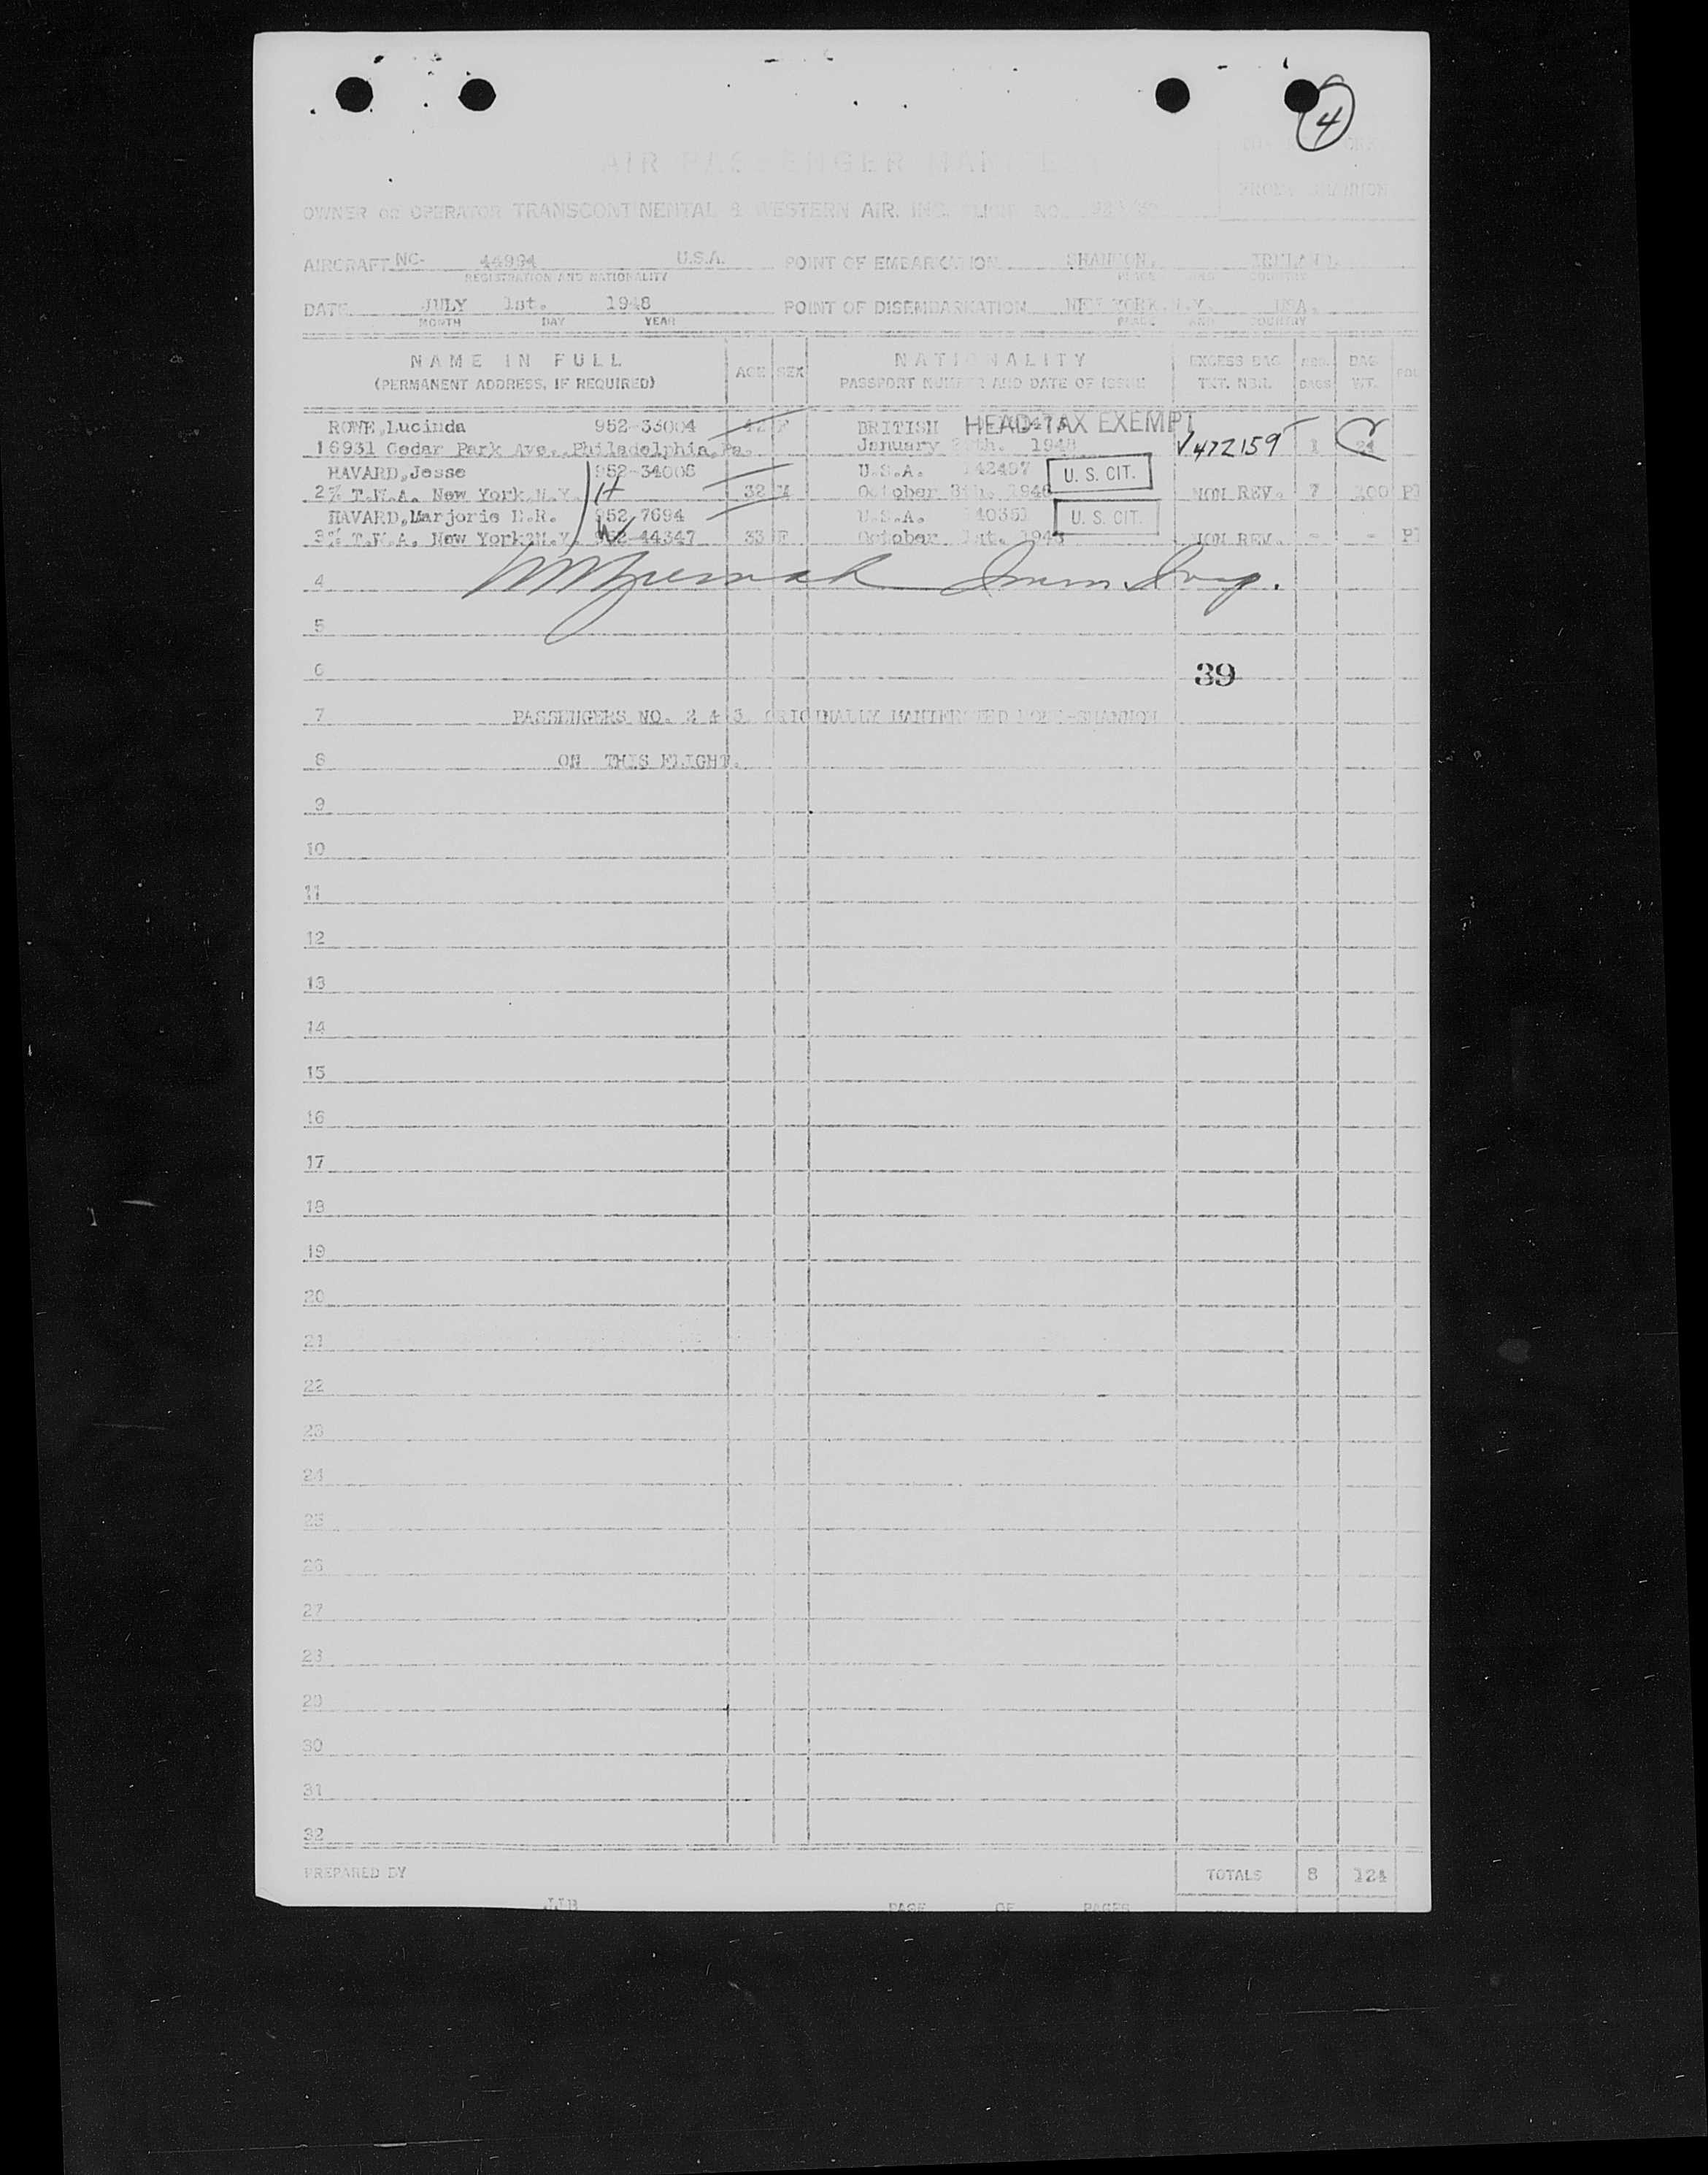 4
AIR PASSENGER MANIFEST
FROM: SHANNON
OWNER OR OPERATOR TRANSCONTINENTAL & WESTERN AIR, INC. FLIGHT NO.
AIRCRAFT NC- 44994 U.S.A. POINT OF EMBARKATION SHANNON, IRELAND.
REGISTRATION AND NATIONALITY PLACE AND COUNTRY
DATE JULY 1st. 1948 POINT OF DISEMBARKATION NEW YORK.N.Y. USA.
MONTH DAY YEAR PLACE AND COUNTRY
NAME IN FULL AGE SEX NATIONALITY EXCESS BAG BAG
(PERMANENT ADDRESS, IF REQUIRED) PASSPORT NUMBER AND DATE OF ISSUE TKT. NBR. BAGS WT.
ROWE,Lucinda 952-33004 42 F BRITISH HEAD TAX EXEMPT
1 6931 Cedar Park Ave., Philadelphia,Pa. January 1948 √472159 1 24
HAVARD,Jesse 952-34006 U.S.A. 42407 U. S. CIT.
2 % T.W.A. New York,N.Y. H 32 M October 8th. 1946 NON REV. 7 100
HAVARD,Marjorie 952 7694 U.S.A. 40351 U. S. CIT.
3 % T.W.A. New York N.Y. W 952-44347 33 F October 1st. 1946 NON REV. - -
4
5
6 39
7 PASSENGERS NO. 2 & 3 ORIGINALLY MANIFESTED SHANNON
8 ON THIS FLIGHT.
9
10
11
12
13
14
15
16
17
18
19
20
21
22
23
24
25
26
27
28
29
30
31
32
PREPARED BY TOTALS 8 124
JJB PAGE OF PAGES